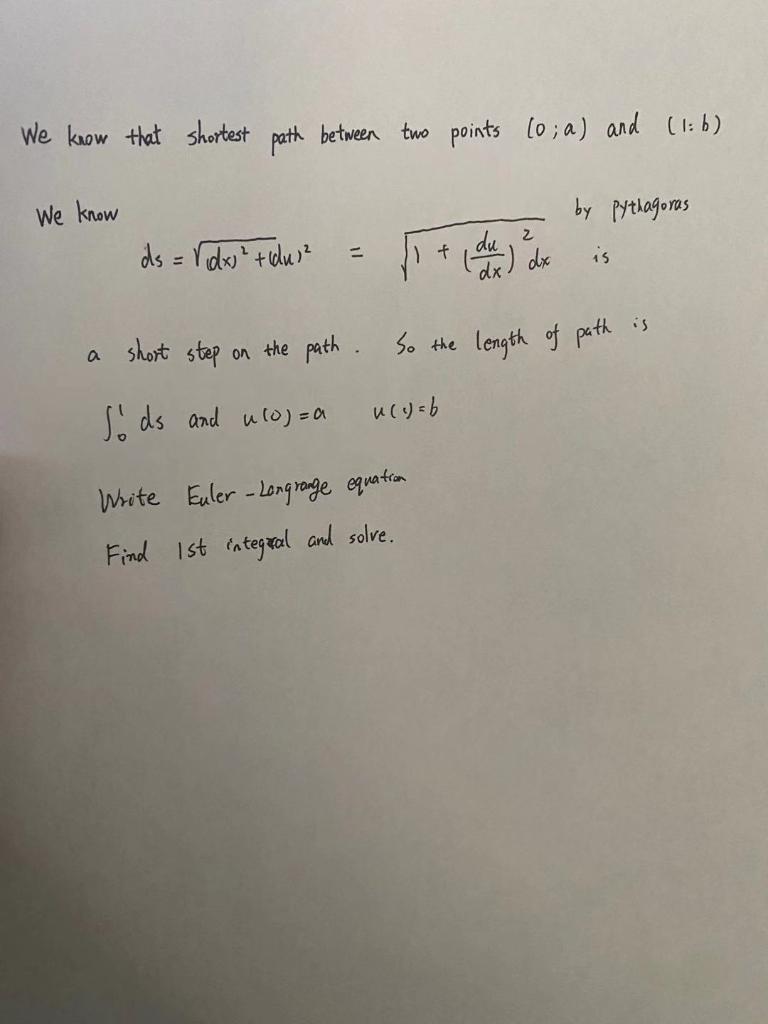 We know that shortest path between two points (0;a) and (1:b)
We know by pythagoras
ds = √(dx)² + (du)² = √1 + (du/dx)² dx is
a short step on the path. So the length of path is
∫₀¹ ds and u(0)=a u(1)=b
Write Euler-Longrange equation
Find 1st integral and solve.